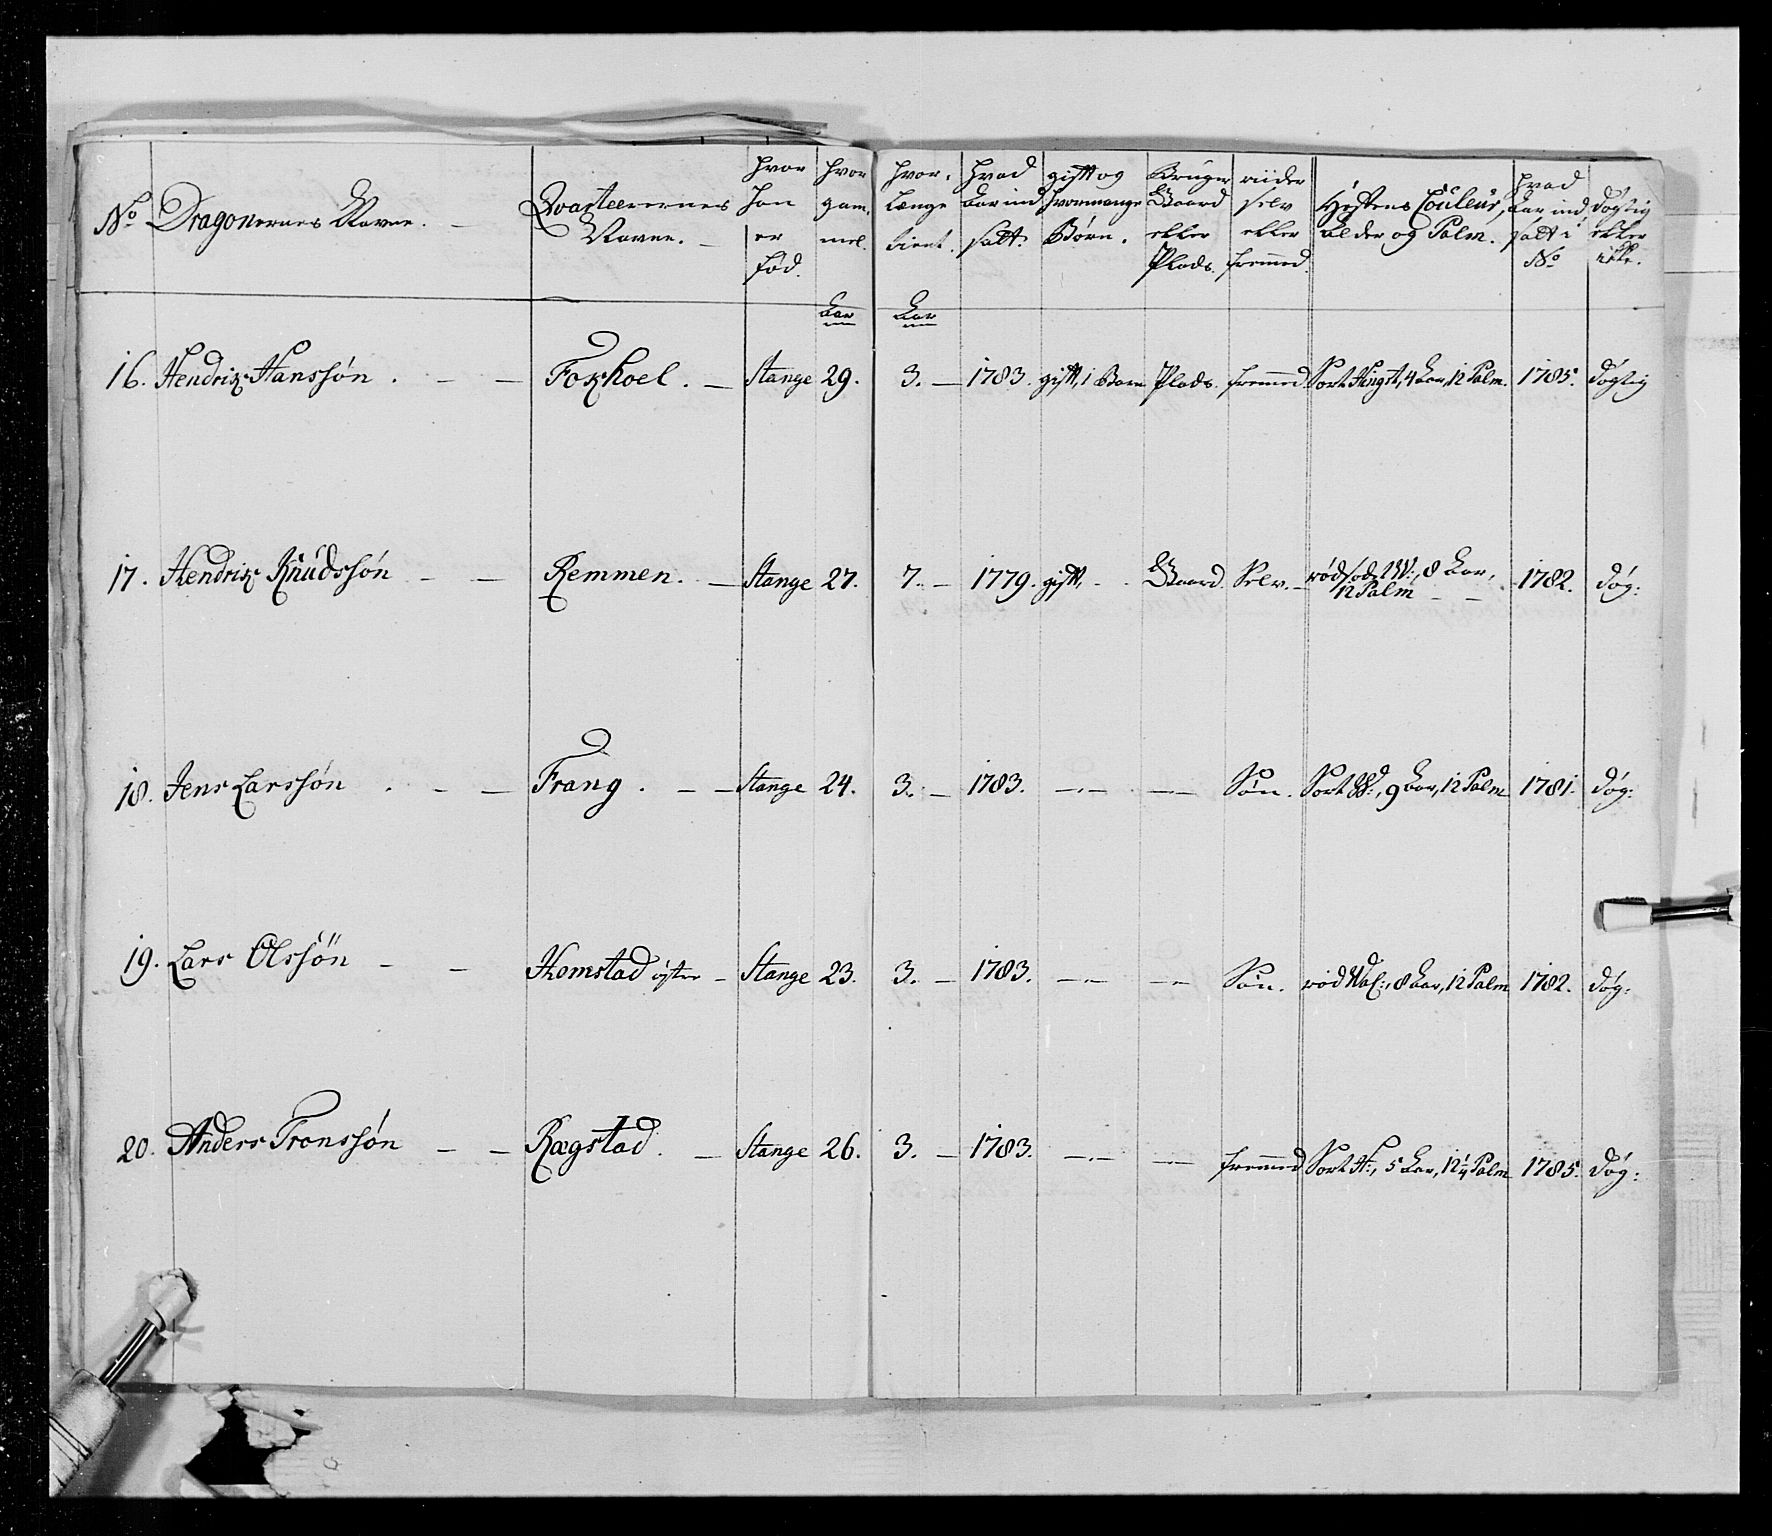 No. Dragonernes Navne. Qvarteerernes Navne. hvor han er fød. hvor gam- mel. hvor- længe tient. hvad Aar ind satt. gift og hvormange Børn. Bruger Gaard eller Plads. riider selv eller fremmed. Hæstens Couleur, Alder og Palm. hvad Aar ind satt i No. døgtig eller ikke.
Aar Aar
16. Hendrik Hanssøn. Foxhoel. Stange 29. 3. 1783. gift, 1 Barn Plads. fremmed. Sort Hingst, 4 Aar, 12 Palm. 1785. døgtig
17. Hendrik Knudssøn Remmen. Stange 27. 7. 1779. gift, Gaard. Selv. 8 Aar,
12 Palm 1782. døg:
18. Jens Larssøn Frang. Stange 24. 3. 1783. Søn. Sort 9 Aar, 12 Palm 1781. døg:
19. Lars Olssøn Homstad øster Stange 23. 3. 1783. Søn. rød Val:, 8 Aar, 12 Palm 1782. døg:
20. Anders Tronssøn Rægstad. Stange 26. 3. 1783. fremmed Sort H:, 5 Aar, 12¼ Palm 1785. døg: